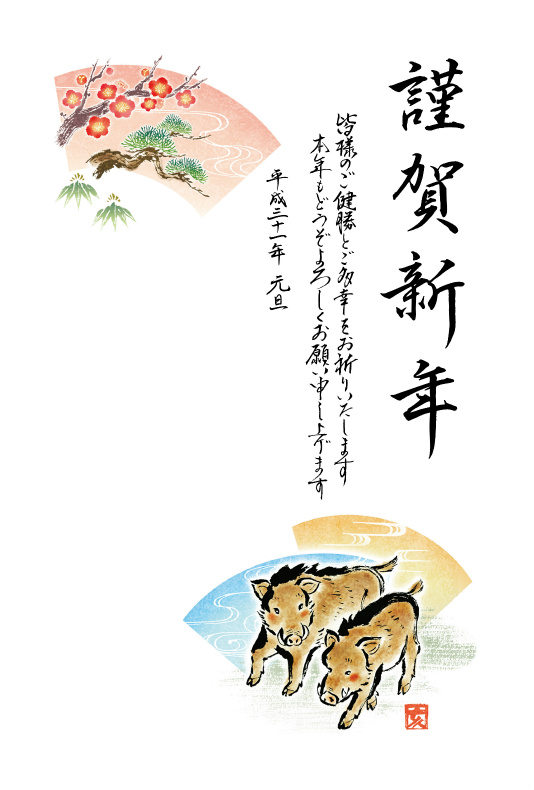 謹賀新年
皆様のご健勝とご多幸をお祈りいたします
本年もどうぞよろしくお願い申し上げます
平成三十一年 元旦
亥